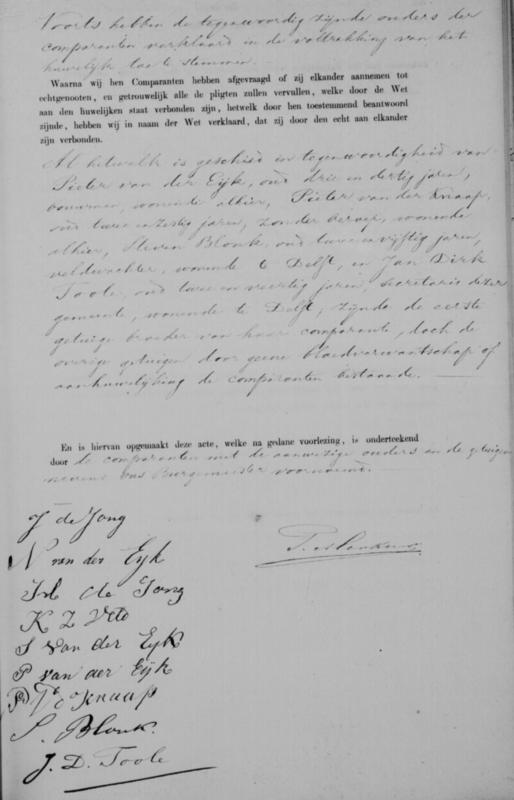 Voorts hebben de tegenwoordig zijnde ouders der
comparanten verklaard in de voltrekking van het
huwelijk toe te stemmen.
Waarna wij hen Comparanten hebben afgevraagd of zij elkander aannemen tot
echtgenooten, en getrouwelijk alle de pligten zullen vervullen, welke door de Wet
aan den huwelijken staat verbonden zijn, hetwelk door hen toestemmend beantwoord
zijnde, hebben wij in naam der Wet verklaard, dat zij door den echt aan elkander
zijn verbonden.
Al hetwelk is geschied in tegenwoordigheid van
Pieter van der Eijk, oud drie en dertig jaren,
bouwman, wonende alhier, Pieter van der Knaap,
oud twee en zestig jaren, zonder beroep, wonende
alhier, Steven Blonk, oud twee en vijftig jaren,
veldwachter, wonende te Delft, en Jan Dirk
Toole, oud twee en veertig jaren, secretaris dezer
gemeente, wonende te Delft, zijnde de eerste
getuige broeder van haar comparante, doch de
overige getuigen door geene bloedverwantschap of
aanhuwelijking de comparanten bestaande.
En is hiervan opgemaakt deze acte, welke na gedane voorlezing, is onderteekend
door de comparanten met de aanwezige ouders en de getuigen
nevens ons Burgemeester voornoemd.
J de Jong
N van der Eyk
de Jong
K Z Veld
S van der Eyk
P van der Eyk
P vd Knaap
S. Blonk.
J. D. Toole